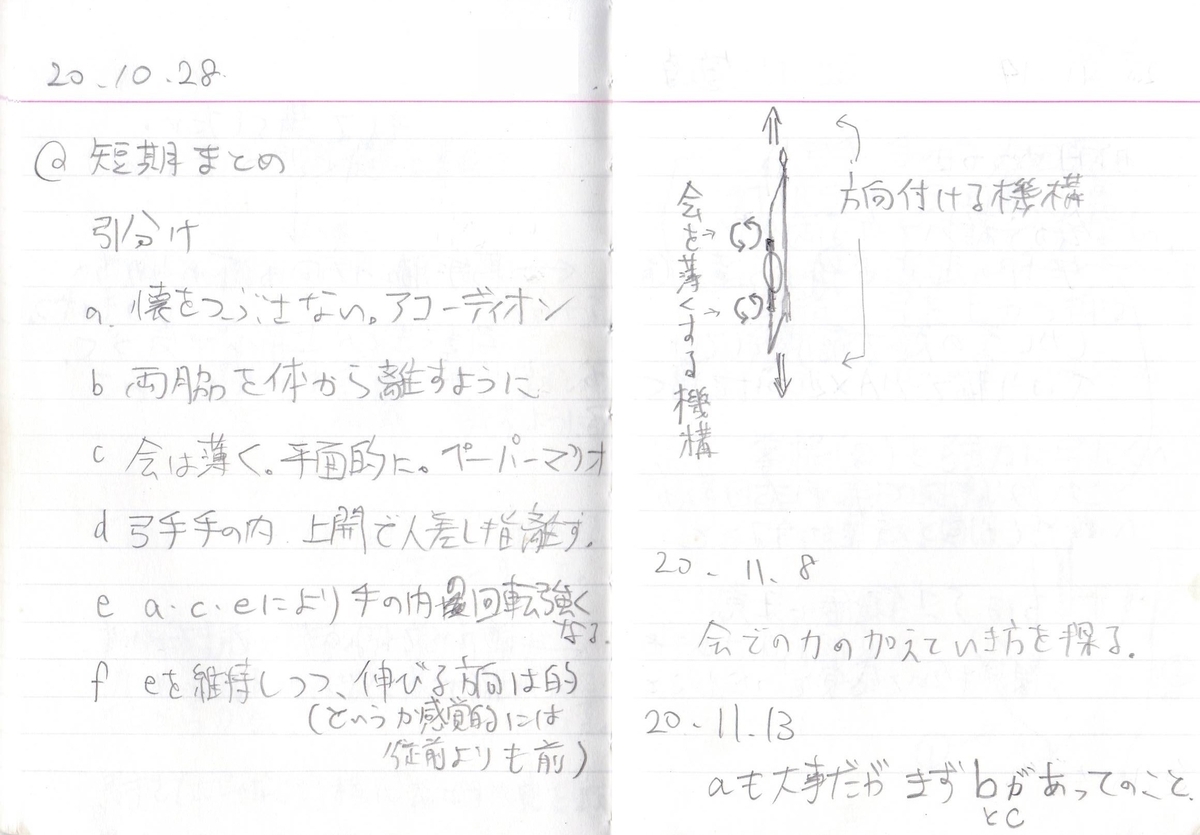 20.10.28
@ 短期まとめ
引分け
a. 懐をつぶさない。アコーディオン
b 両脇を体から離すように
c 会は薄く。平面的に。ペーパーマリオ
d 弓手手の内 上開で人差し指離す.
e a.c.eにより手の内回転強く
なる.
f eを維持しつつ、伸びる方向は的
(というか感覚的には
従前よりも前)
会を薄くする機構
方向付ける機構
20.11.8
会での力の加えていき方を探る.
20.11.13
aも大事だがまずbがあってのこと.
とc